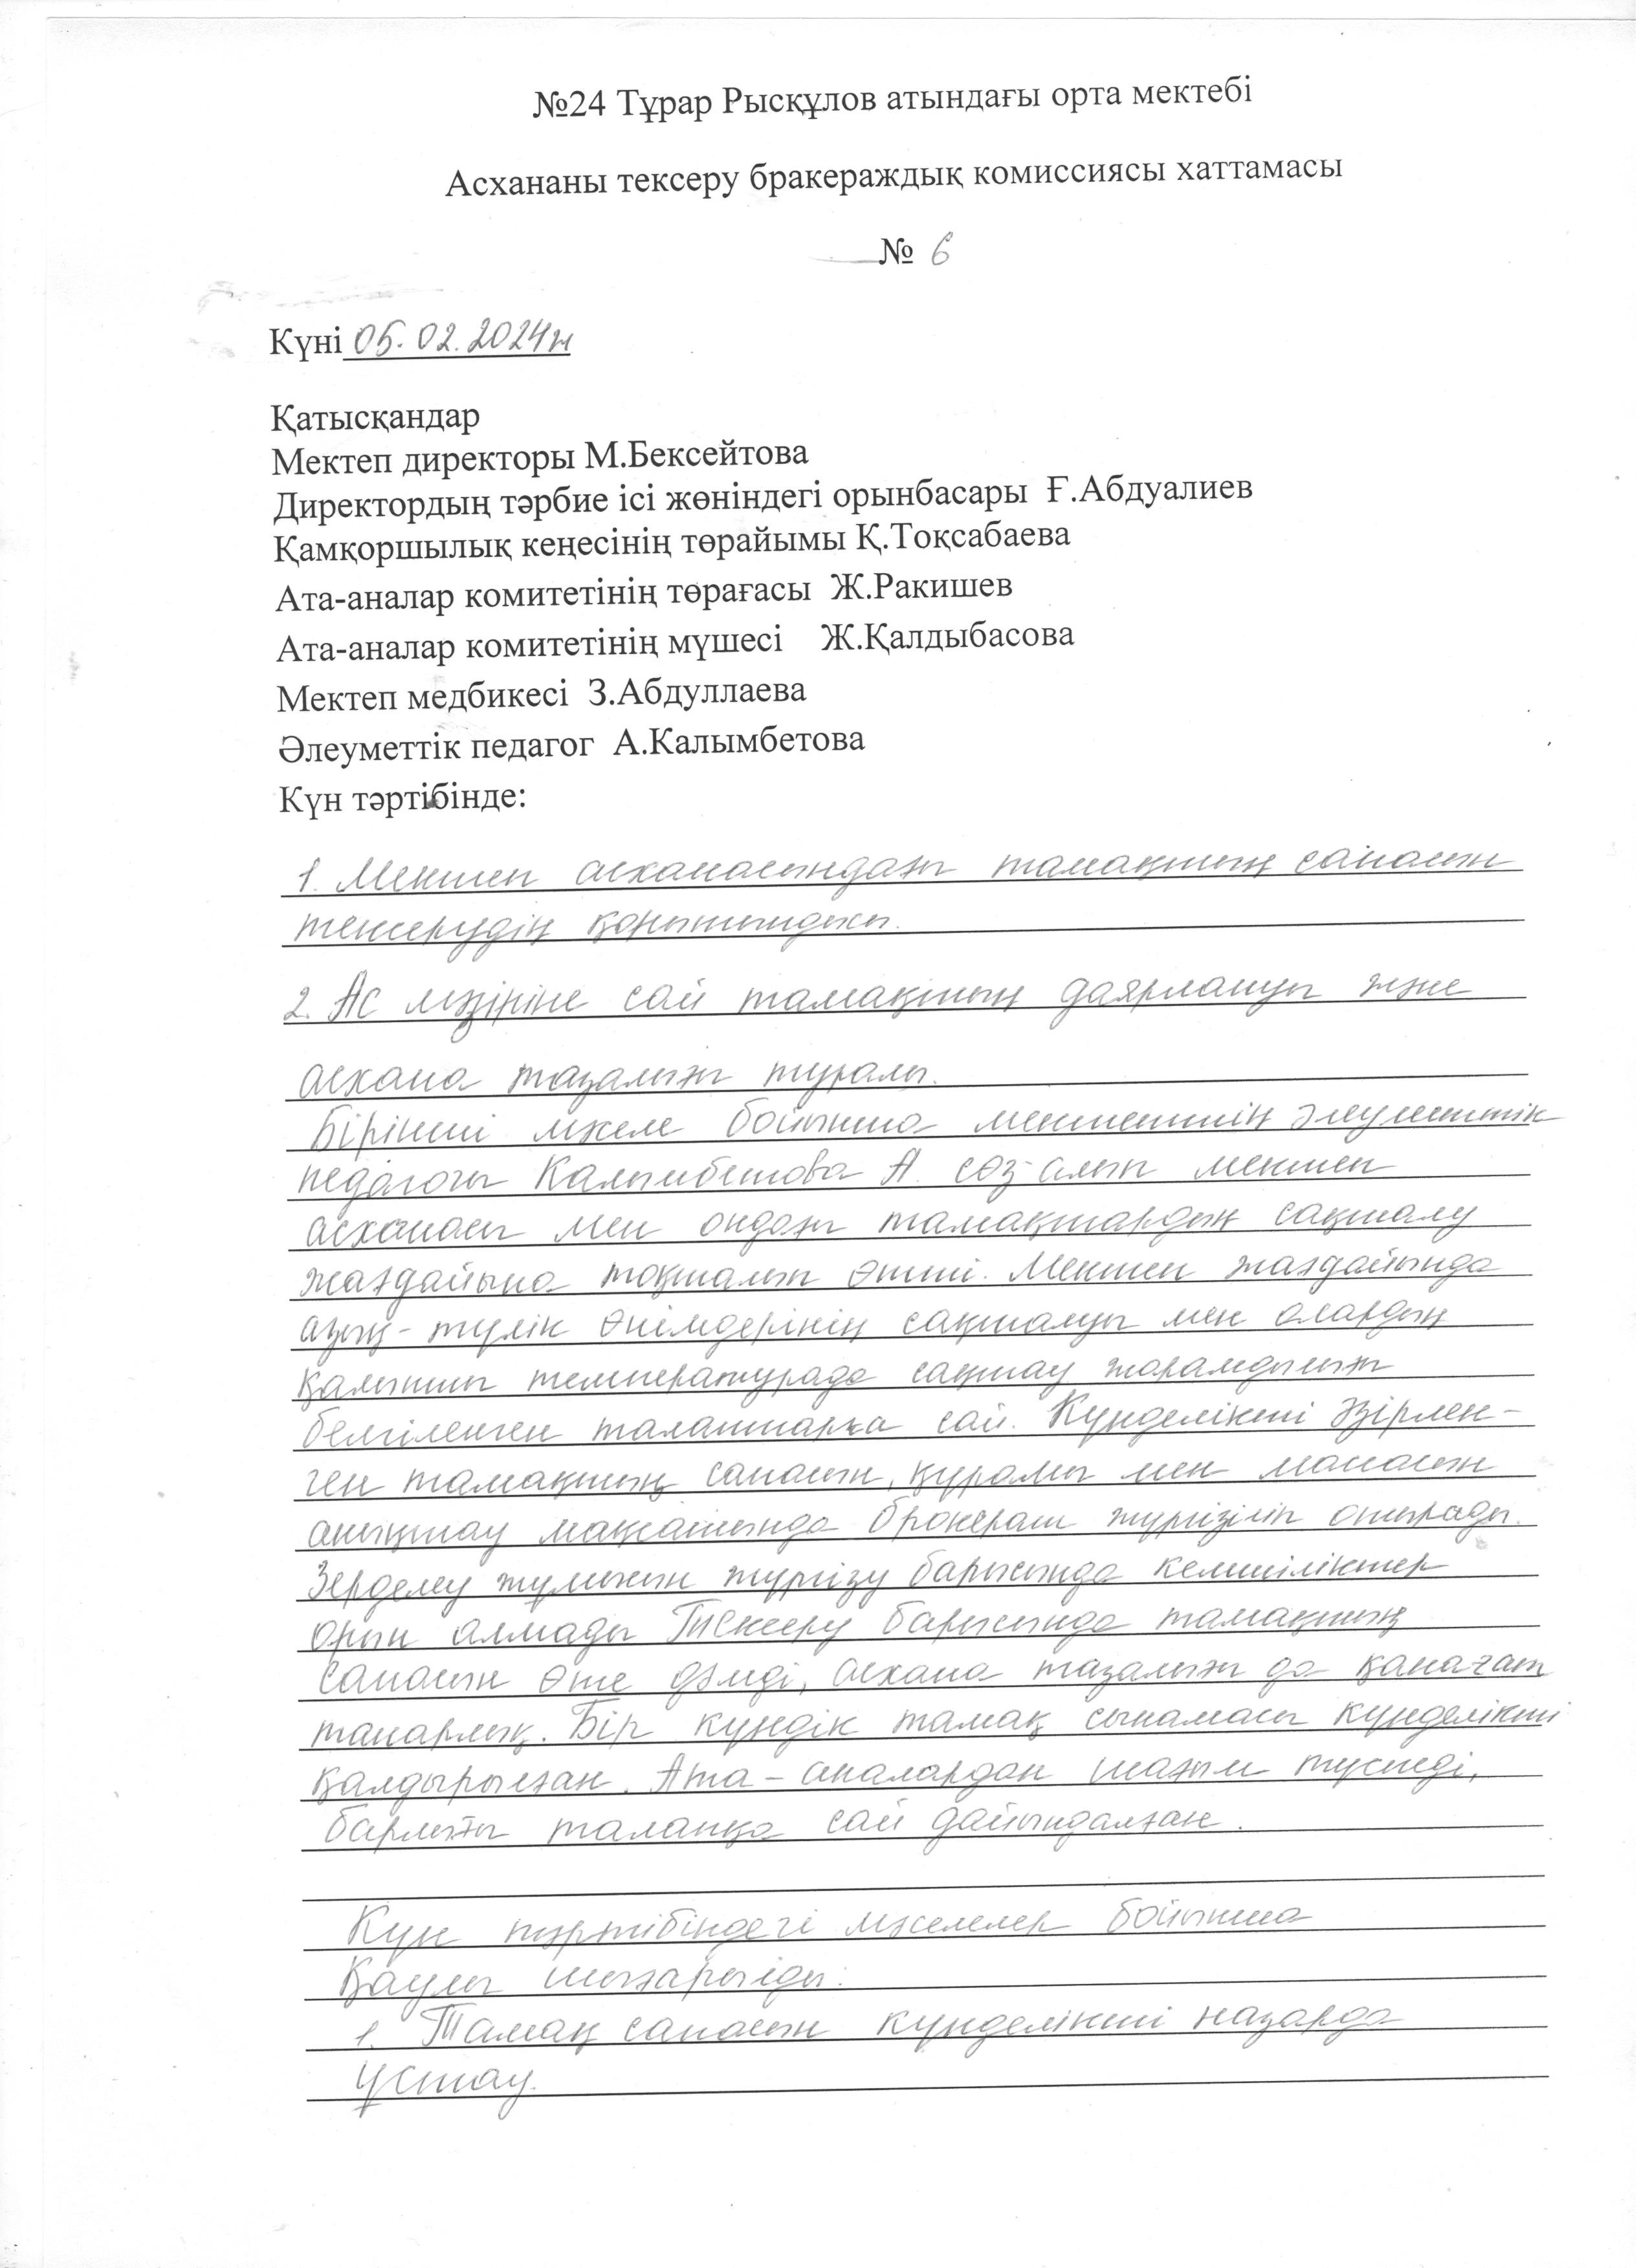 №24 Тұрар Рысқұлов атындағы орта мектебі
Асхананы тексеру бракераждық комиссиясы хаттамасы
№ 6
Күні 05.02.2024ж
Қатысқандар
Мектеп директоры М.Бексейтова
Директордың тәрбие ісі жөніндегі орынбасары Ғ.Абдуалиев
Қамқоршылық кеңесінің төрайымы Қ.Тоқсабаева
Ата-аналар комитетінің төрағасы Ж.Ракишев
Ата-аналар комитетінің мүшесі Ж.Қалдыбасова
Мектеп медбикесі З.Абдуллаева
Әлеуметтік педагог А.Калымбетова
Күн тәртібінде:
1. Мектеп асханасындағы тамақтың сапасын
тексерудің қорытындысы.
2. Ас мәзіріне сай тамақтың даярлануы және
асхана тазалығы туралы.
Бірінші мәселе бойынша мектептің әлеуметтік
педагогы Калымбетова А. сөз алып мектеп
асханасы мен ондағы тамақтардың сақталу
жағдайына тоқталып өтті. Мектеп жағдайында
азық-түлік өнімдерінің сақталуы мен олардың
қалыпты температурада сақтау жарамдылығы
белгіленген талаптарға сай. Күнделікті әзірлен-
ген тамақтың сапасын, құрамы мен
анықтау мақсатында бракераж жүргізіліп отырады.
Зерделеу жұмысын жүргізу барысында кемшіліктер
орын алмады Тексеру барысында тамақтың
сапасын өте дәмді, асхана тазалығы да қанағат
танарлық. Бір күндік тамақ сынамасы күнделікті
қалдырылған. Ата-аналардан шағым түспеді,
барлығы талапқа сай дайындалған.
Күн тәртібіндегі мәселелер бойынша
Қаулы шығарылды:
1. Тамақ сапасын күнделікті назарда
ұстау.